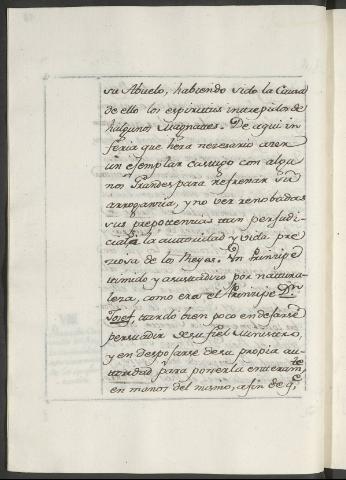 su Abuelo, habiendo sido la Causa
de ello los espiritus intrepidos de
halgunos Magnates. De aqui in
feria que hera necesario acer
un ejemplar castigo con algu
nos Grandes para refrenar su
arrogancia, y no ver renobadas
sus prepotencias tan perjudi
ciales a la autoridad y vida pre
ziosa de los Reyes. Un Principe
timido y asustadizo por natura
leza, como era el Principe Dn
Josef, tardo bien poco en dejarse
persuadir de su fiel Ministro,
y en desposarse de su propia au
toridad para ponerla enteramte
en manos del mismo, a fin de qe